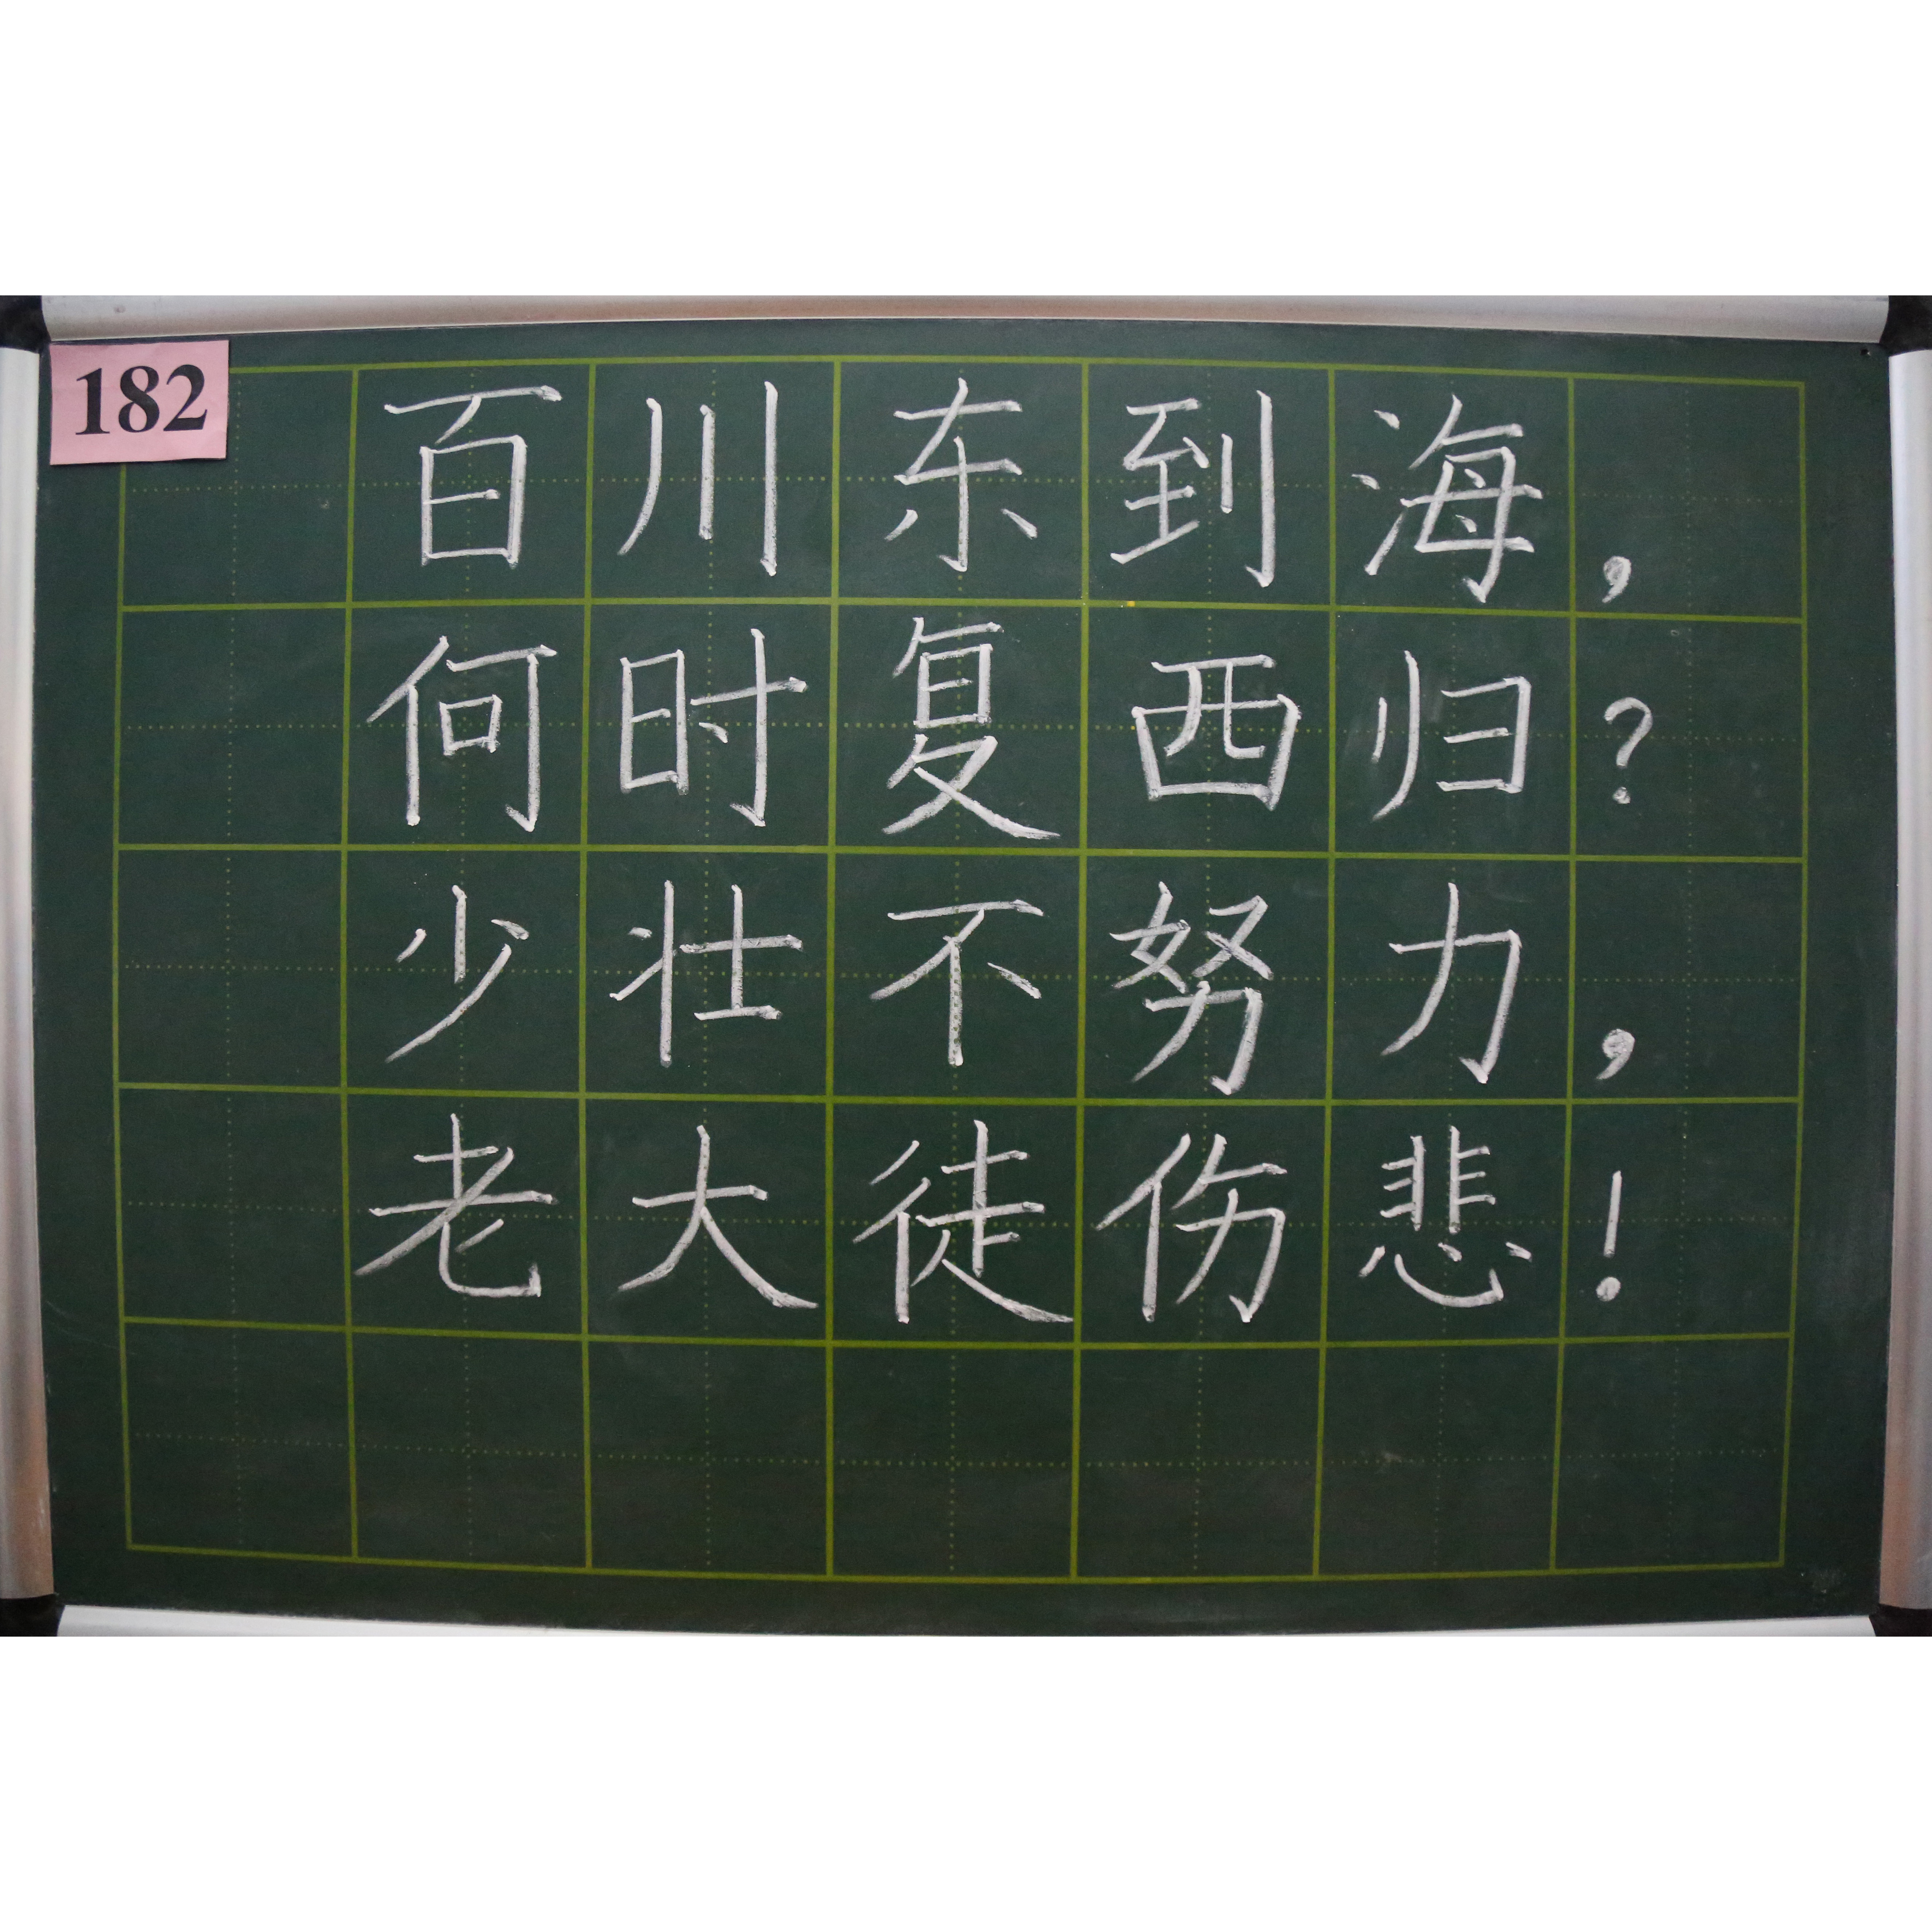 182
百川东到海，
何时复西归？
少壮不努力，
老大徒伤悲！